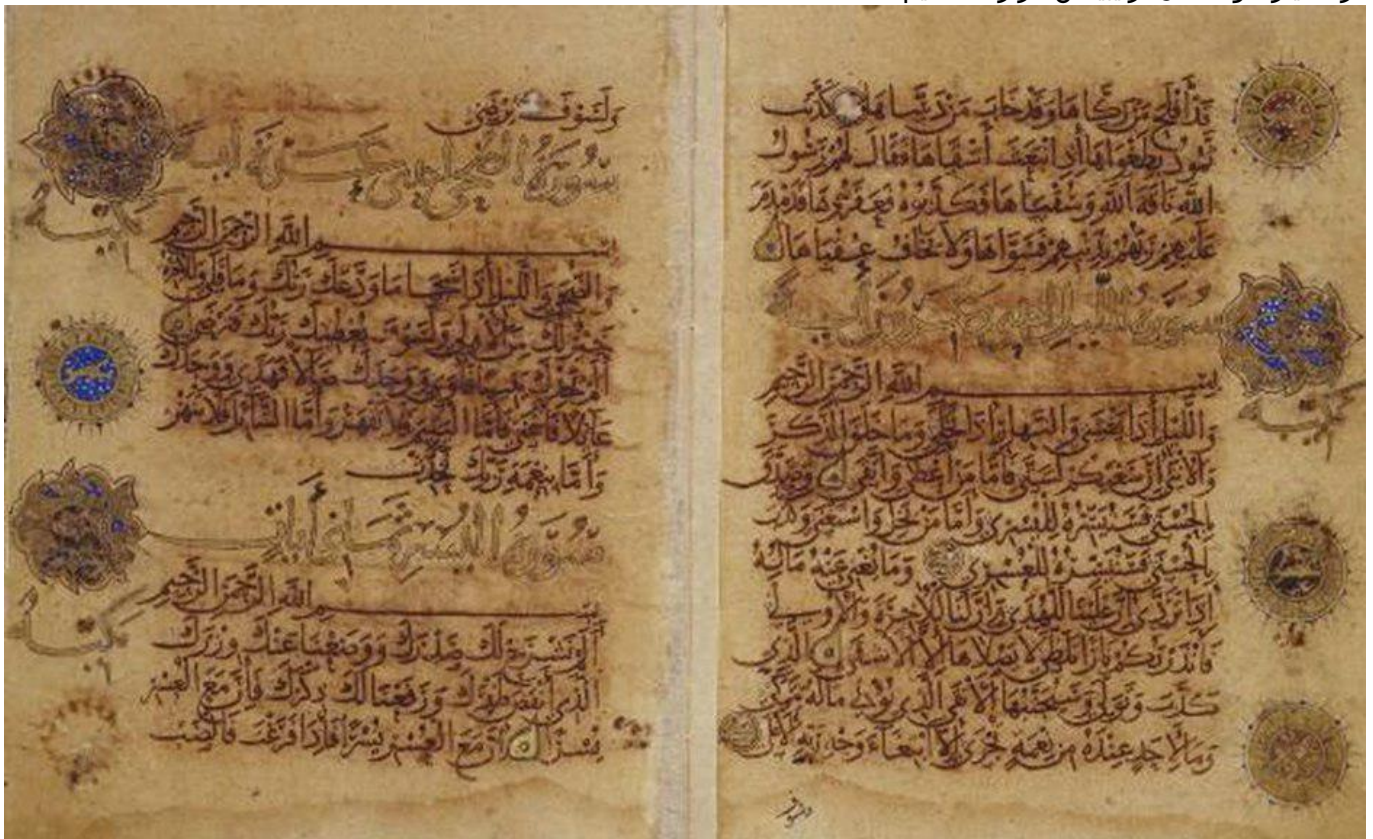 قد أفلح من زكاها وقد خاب من دساها كذبت
ثمود بطغواها إذ انبعث أشقاها فقال لهم رسول
الله ناقة الله وسقياها فكذبوه فعقروها فدمدم
عليهم ربهم بذنبهم فسواها ولا يخاف عقباها
سورة الليل
مكية
بسم الله الرحمن الرحيم
والليل إذا يغشى والنهار إذا تجلى وما خلق الذكر
والأنثى إن سعيكم لشتى فأما من أعطى واتقى وصدق
بالحسنى فسنيسره لليسرى وأما من بخل واستغنى وكذب
بالحسنى فسنيسره للعسرى وما يغني عنه ماله
إذا تردى إن علينا للهدى وإن لنا للآخرة والأولى
فأنذرتكم نارا تلظى لا يصلاها إلا الأشقى الذي
كذب وتولى وسيجنبها الأتقى الذي يؤتي ماله يتزكى
وما لأحد عنده من نعمة تجزى إلا ابتغاء وجه ربه الأعلى
ولسوف يرضى
سورة الضحى إحدى عشرة آية
مكية
بسم الله الرحمن الرحيم
والضحى والليل إذا سجى ما ودعك ربك وما قلى وللآخرة
خير لك من الأولى ولسوف يعطيك ربك فترضى
ألم يجدك يتيما فآوى ووجدك ضالا فهدى ووجدك
عائلا فأغنى فأما اليتيم فلا تقهر وأما السائل فلا تنهر
وأما بنعمة ربك فحدث
سورة ثماني آيات
مكية
بسم الله الرحمن الرحيم
ألم نشرح لك صدرك ووضعنا عنك وزرك
الذي أنقض ظهرك ورفعنا لك ذكرك فإن مع العسر
يسرا إن مع العسر يسرا فإذا فرغت فانصب